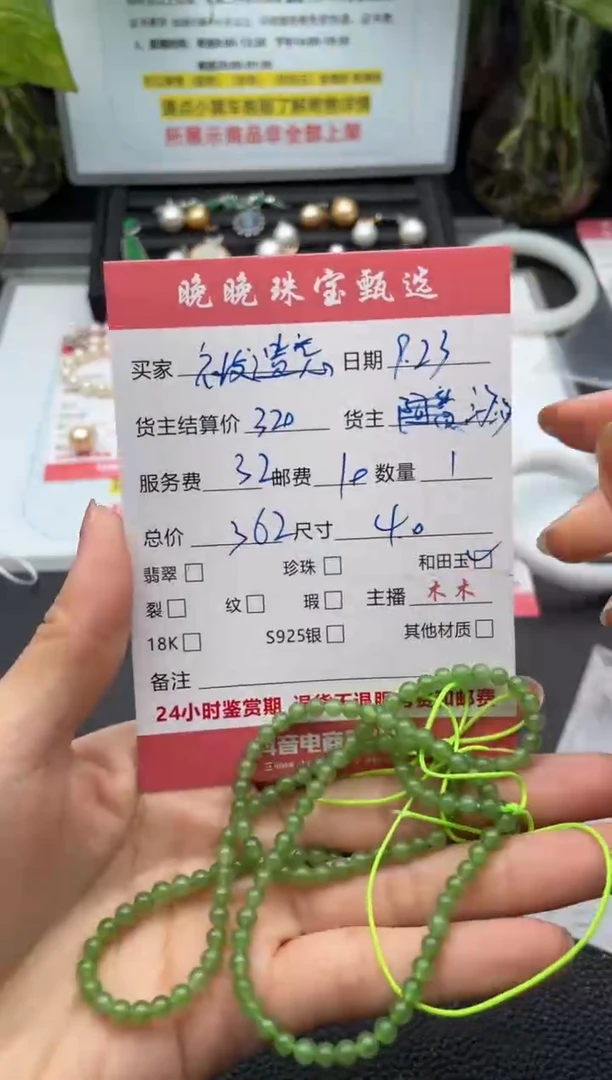 请点小黄车客服了解商品详情
所展示商品非全部上架
晚晚珠宝甄选
买家 日期 9.23
货主结算价 320 货主
服务费 32 邮费 10 数量 1
总价 362 尺寸 4.0
翡翠 珍珠 和田玉
裂 纹 瑕 主播 木木
18K S925银 其他材质
备注
24小时鉴赏期 退货不退服务费和邮费
抖音电商